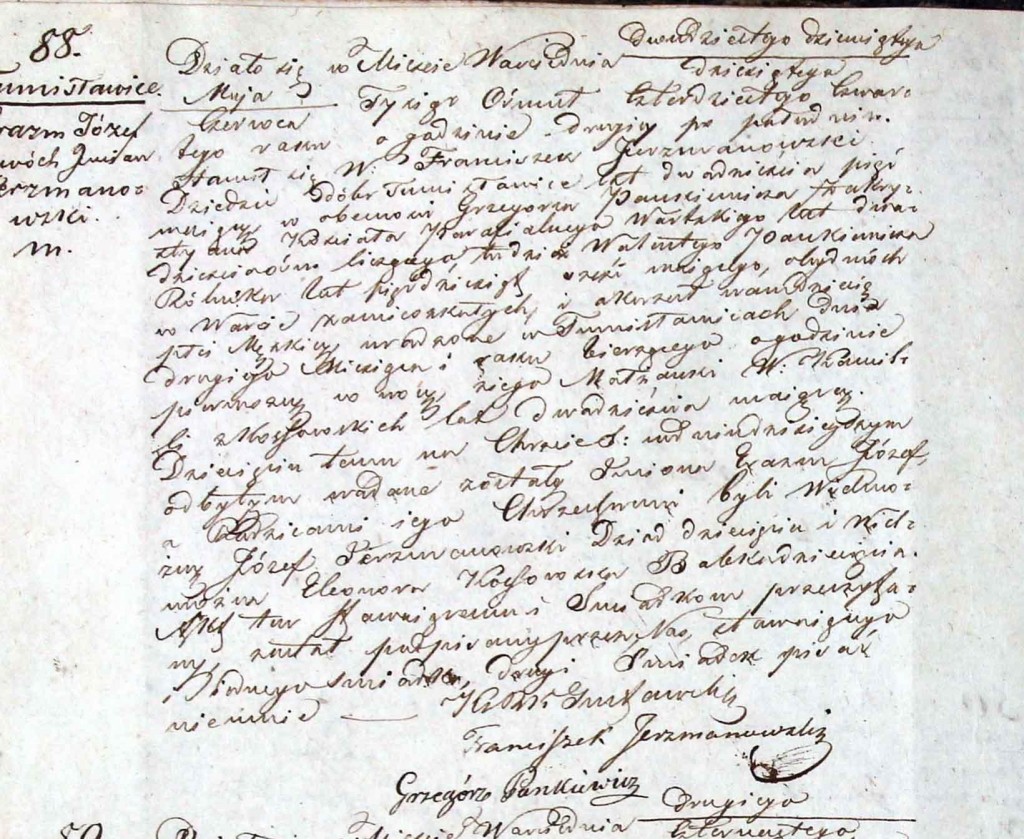 88.
Tumisławice.
Erazm Józef
dwóch Imion
Jerzmano-
wski.
m.
Działo się w Mieście Warcie Dnia dwudziestego dziewiątego
Maja / dziesiątego
Czerwca Tysiąc Ośmset Czterdziestego Czwar-
tego roku o godzinie drugiej po południu.
Stawił się W. Franciszek Jerzmanowski
Dziedzic Dóbr Tumisławice lat dwadzieścia pięć
maiący w obecności Grzegorza Pankiewicza Zakry-
styana Kościoła Parafialnego Wartskiego lat dwa-
dzieścia ośm liczącego tudzież Walentego Pankiewicza
Rólnika lat pięćdziesiąt sześć maiącego, obydwóch
w Warcie zamieszkałych, i okazał nam dziecię
płci Męzkiej urodzone w Tumisławicach dnia
drugiego Miesiąca i roku bieżącego o godzinie
pierwszej w nocy, z jego Małżonki W. Kamil-
li z Kossowskich lat dwadzieścia maiącej.
Dziecięciu temu na Chrzcie S:
odbytym nadane zostały Imiona Erazm Józef,
a Rodzicami jego Chrzestnemi byli Wielmo-
żny Józef Jerzmanowski Dziad dziecięcia i Wiel-
można Eleonora Kossowska Babka dziecięcia.
Akt ten stawaiącemu i Swiadkom przeczyta-
ny, został podpisany przez Nas, stawaiącego
i iednego swiadka, drugi Swiadek pisać
nieumie
Franciszek Jerzmanowski
Grzegórz Pankiewicz
drugiego
89. Działo się w Mieście Warcie Dnia czternastego